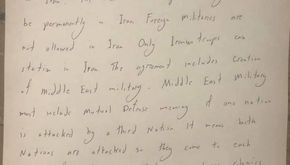 be permanently in Iran Foreign militaries are
not allowed in Iran Only Iranian troops can
station in Iran The agreement includes Creation
of middle East military. Middle East Military
must include Mutual Defense meaning if one nation
is attacked by a third Nation It means both
Nations are attacked so they come to each